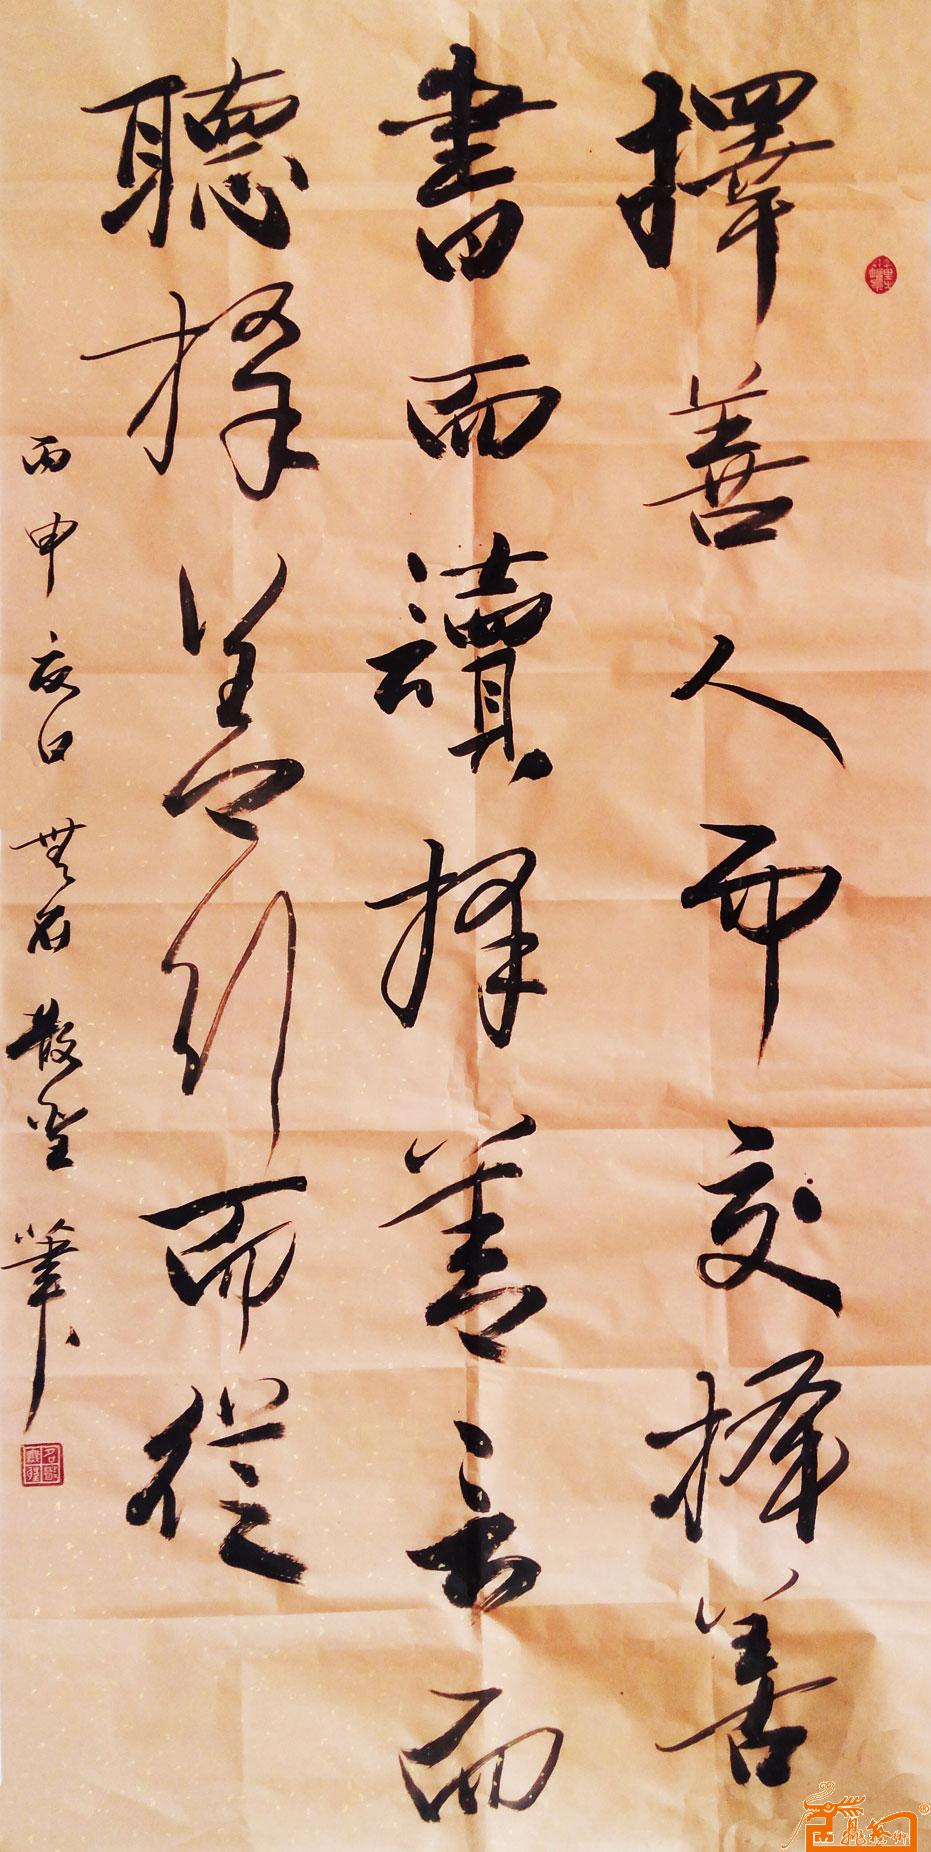 擇善人而交擇善
書而讀擇善言而
聽擇善行而從
丙申 夏日 無石 散聖 筆